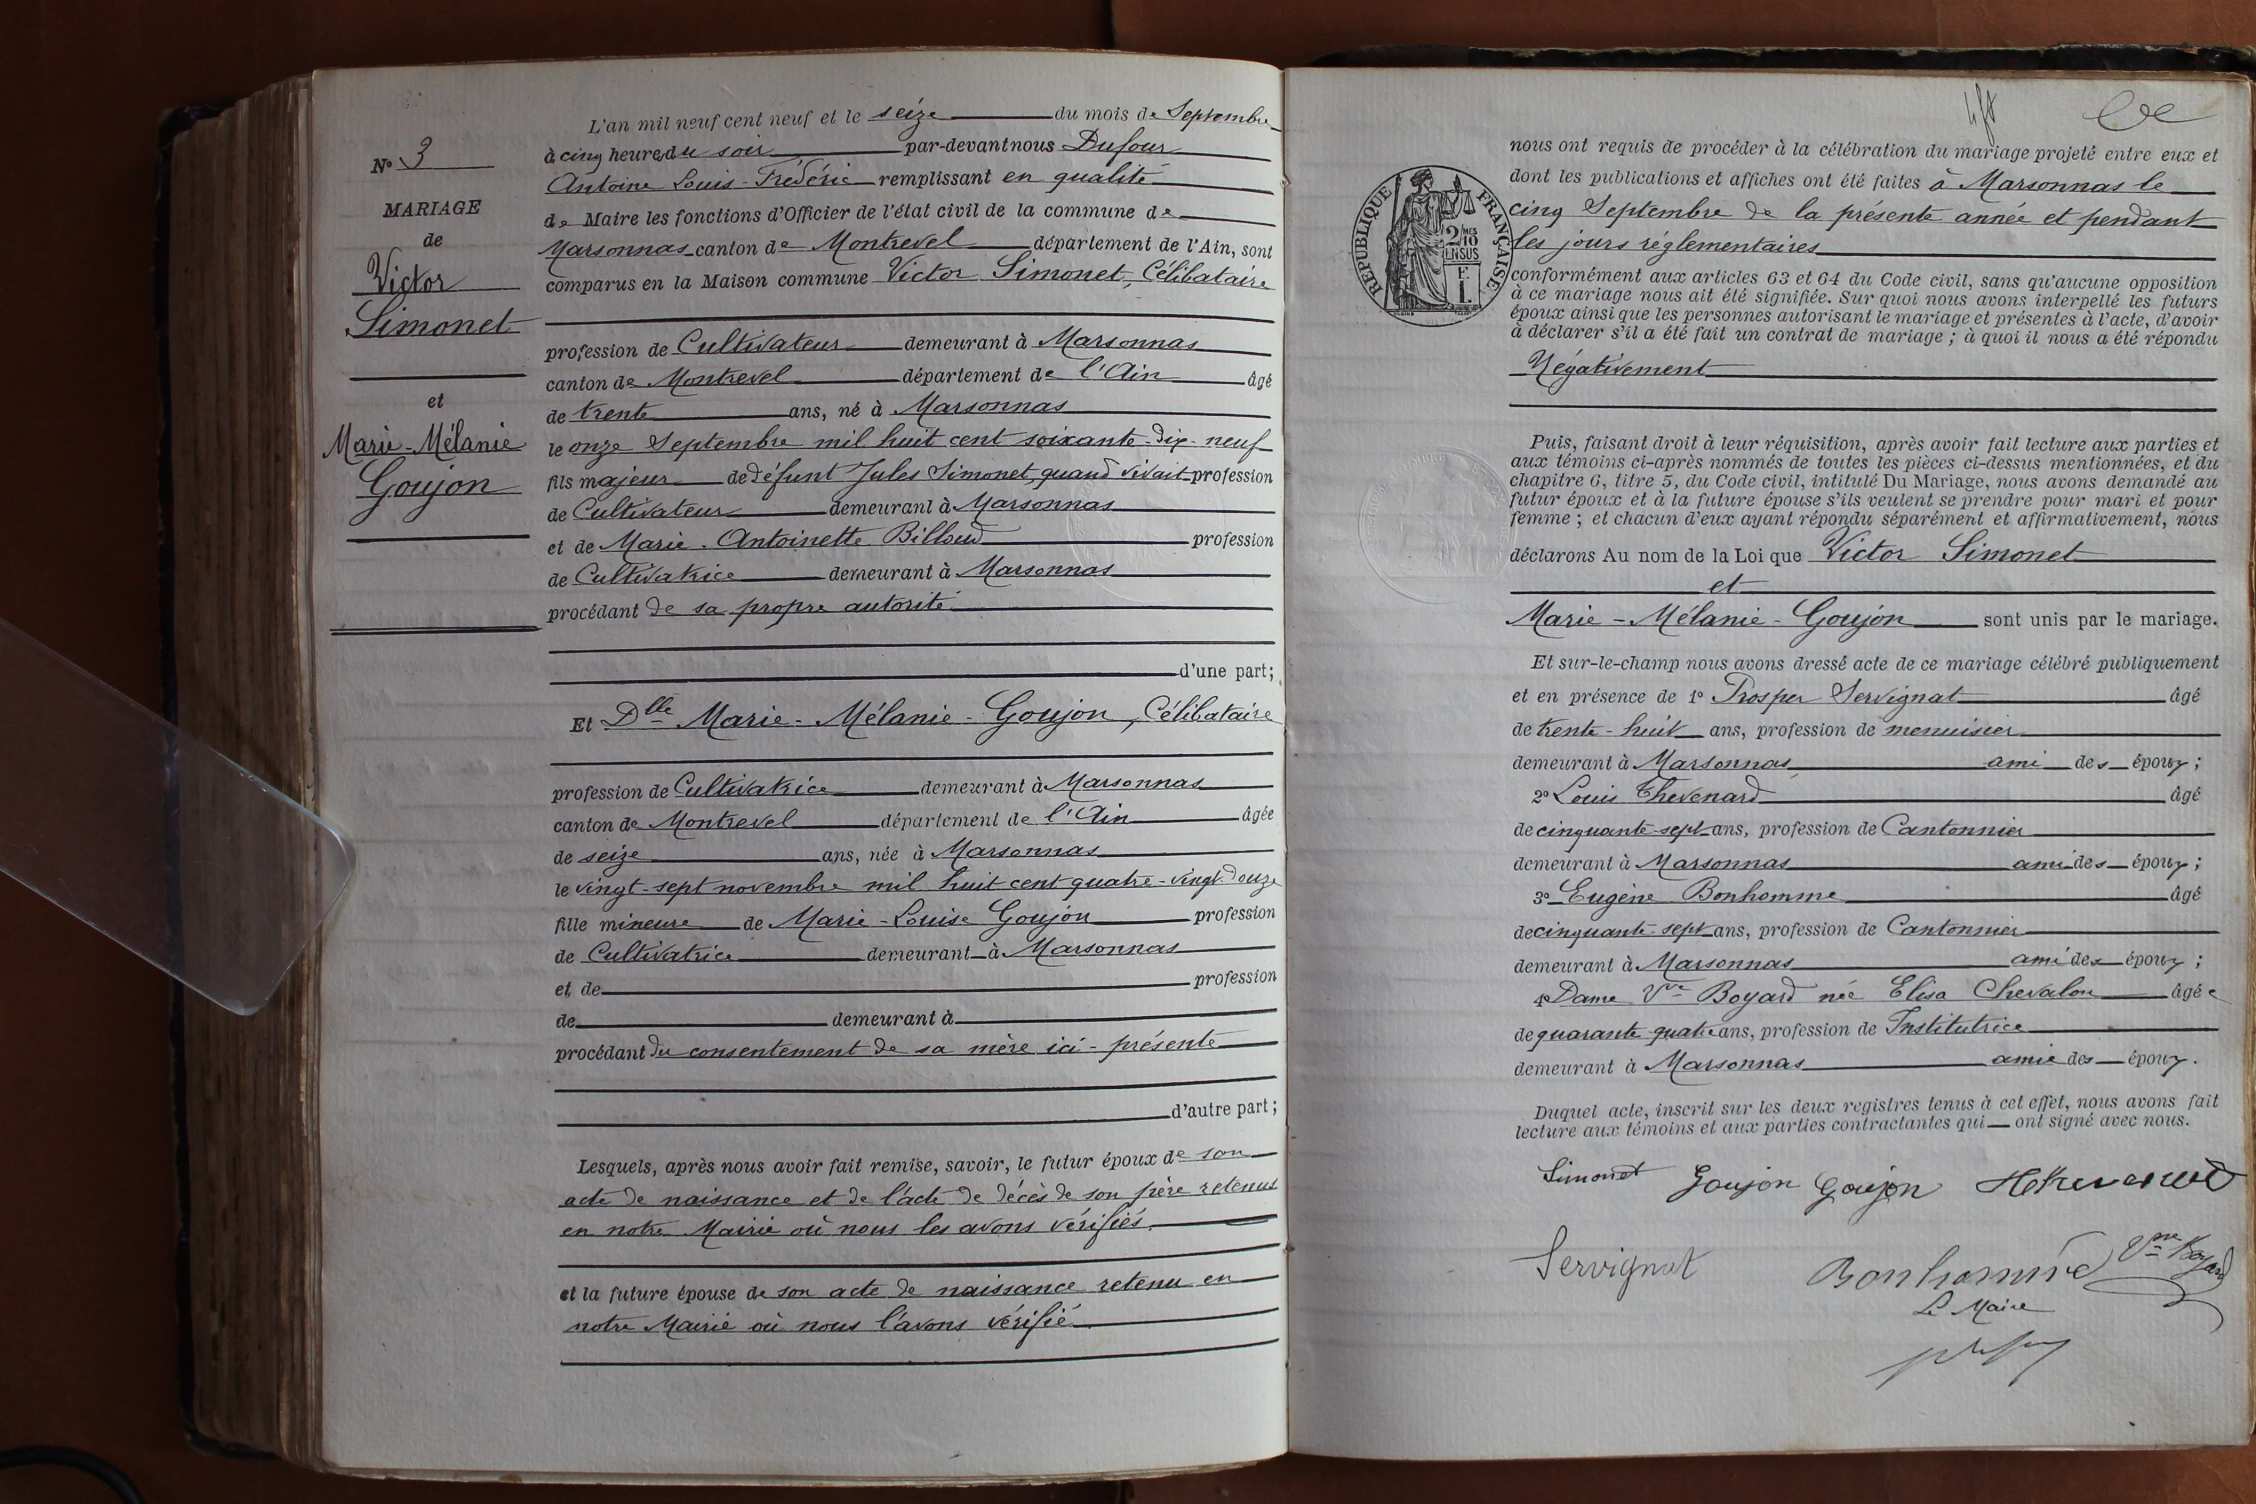 L'an mil neuf cent neuf et le seize du mois de Septembre
N° 3
à cinq heures du soir par-devant nous Dufour
Antoine Louis-Frédéric remplissant en qualité
MARIAGE
de Maire les fonctions d'Officier de l'état civil de la commune de
de
Marsonnas canton de Montrevel département de l'Ain, sont
Victor
comparus en la Maison commune Victor Simonet, Célibataire
Simonet
profession de Cultivateur demeurant à Marsonnas
canton de Montrevel département de l'Ain âgé
et
de trente ans, né à Marsonnas
Marie-Mélanie
le onze Septembre mil huit cent soixante-dix-neuf
Goujon
fils majeur de défunt Jules Simonet, quand vivait profession
de Cultivateur demeurant à Marsonnas
et de Marie-Antoinette Billoud profession
de Cultivatrice demeurant à Marsonnas
procédant de sa propre autorité
d'une part;
Et Dlle Marie-Mélanie-Goujon, Célibataire
profession de Cultivatrice demeurant à Marsonnas
canton de Montrevel département de l'Ain âgée
de seize ans, née à Marsonnas
le vingt-sept novembre mil huit cent quatre-vingt-douze
fille mineure de Marie-Louise Goujon profession
de Cultivatrice demeurant à Marsonnas
et de profession
de demeurant à
procédant du consentement de sa mère ici-présente
d'autre part;
Lesquels, après nous avoir fait remise, savoir, le futur époux de son
acte de naissance et de l'acte de décès de son père retenus
en notre Mairie où nous les avons vérifiés.
et la future épouse de son acte de naissance retenu en
notre Mairie où nous l'avons vérifié
nous ont requis de procéder à la célébration du mariage projeté entre eux et
dont les publications et affiches ont été faites à Marsonnas le
cinq Septembre de la présente année et pendant
les jours réglementaires
RÉPUBLIQUE FRANÇAISE
2/10
MES
EN SUS
E.
L.
conformément aux articles 63 et 64 du Code civil, sans qu'aucune opposition
à ce mariage nous ait été signifiée. Sur quoi nous avons interpellé les futurs
époux ainsi que les personnes autorisant le mariage et présentes à l'acte, d'avoir
à déclarer s'il a été fait un contrat de mariage ; à quoi il nous a été répondu
Négativement
Puis, faisant droit à leur réquisition, après avoir fait lecture aux parties et
aux témoins ci-après nommés de toutes les pièces ci-dessus mentionnées, et du
chapitre 6, titre 5, du Code civil, intitulé Du Mariage, nous avons demandé au
futur époux et à la future épouse s'ils veulent se prendre pour mari et pour
femme ; et chacun d'eux ayant répondu séparément et affirmativement, nous
déclarons Au nom de la Loi que Victor Simonet
et
Marie-Mélanie-Goujon sont unis par le mariage.
Et sur-le-champ nous avons dressé acte de ce mariage célébré publiquement
et en présence de 1° Prosper Servignat âgé
de trente-huit ans, profession de menuisier
demeurant à Marsonnas ami des époux ;
2° Louis Thevenard âgé
de cinquante-sept ans, profession de Cantonnier
demeurant à Marsonnas ami des époux ;
3° Eugène Bonhomme âgé
de cinquante-sept ans, profession de Cantonnier
demeurant à Marsonnas ami des époux ;
4° Dame Vve Boyard née Elisa Chevalon âgée
de quarante-quatre ans, profession de Institutrice
demeurant à Marsonnas amie des époux.
Duquel acte, inscrit sur les deux registres tenus à cet effet, nous avons fait
lecture aux témoins et aux parties contractantes qui ont signé avec nous.
Simonet Goujon Goujon
Servignat Bonhomme Vve Boyard
Le Maire